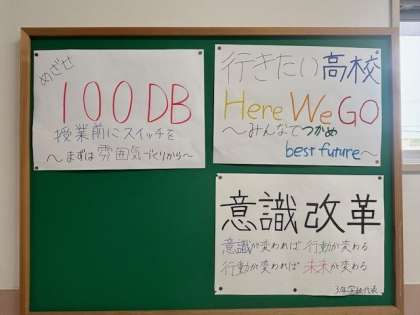 めざせ
100DB
授業前にスイッチを
～まずは雰囲気づくりから～
行きたい高校
Here We GO
～みんなでつかめ
best future～
意識改革
意識が変われば 行動が変わる
行動が変われば 未来が変わる
3年学級代表